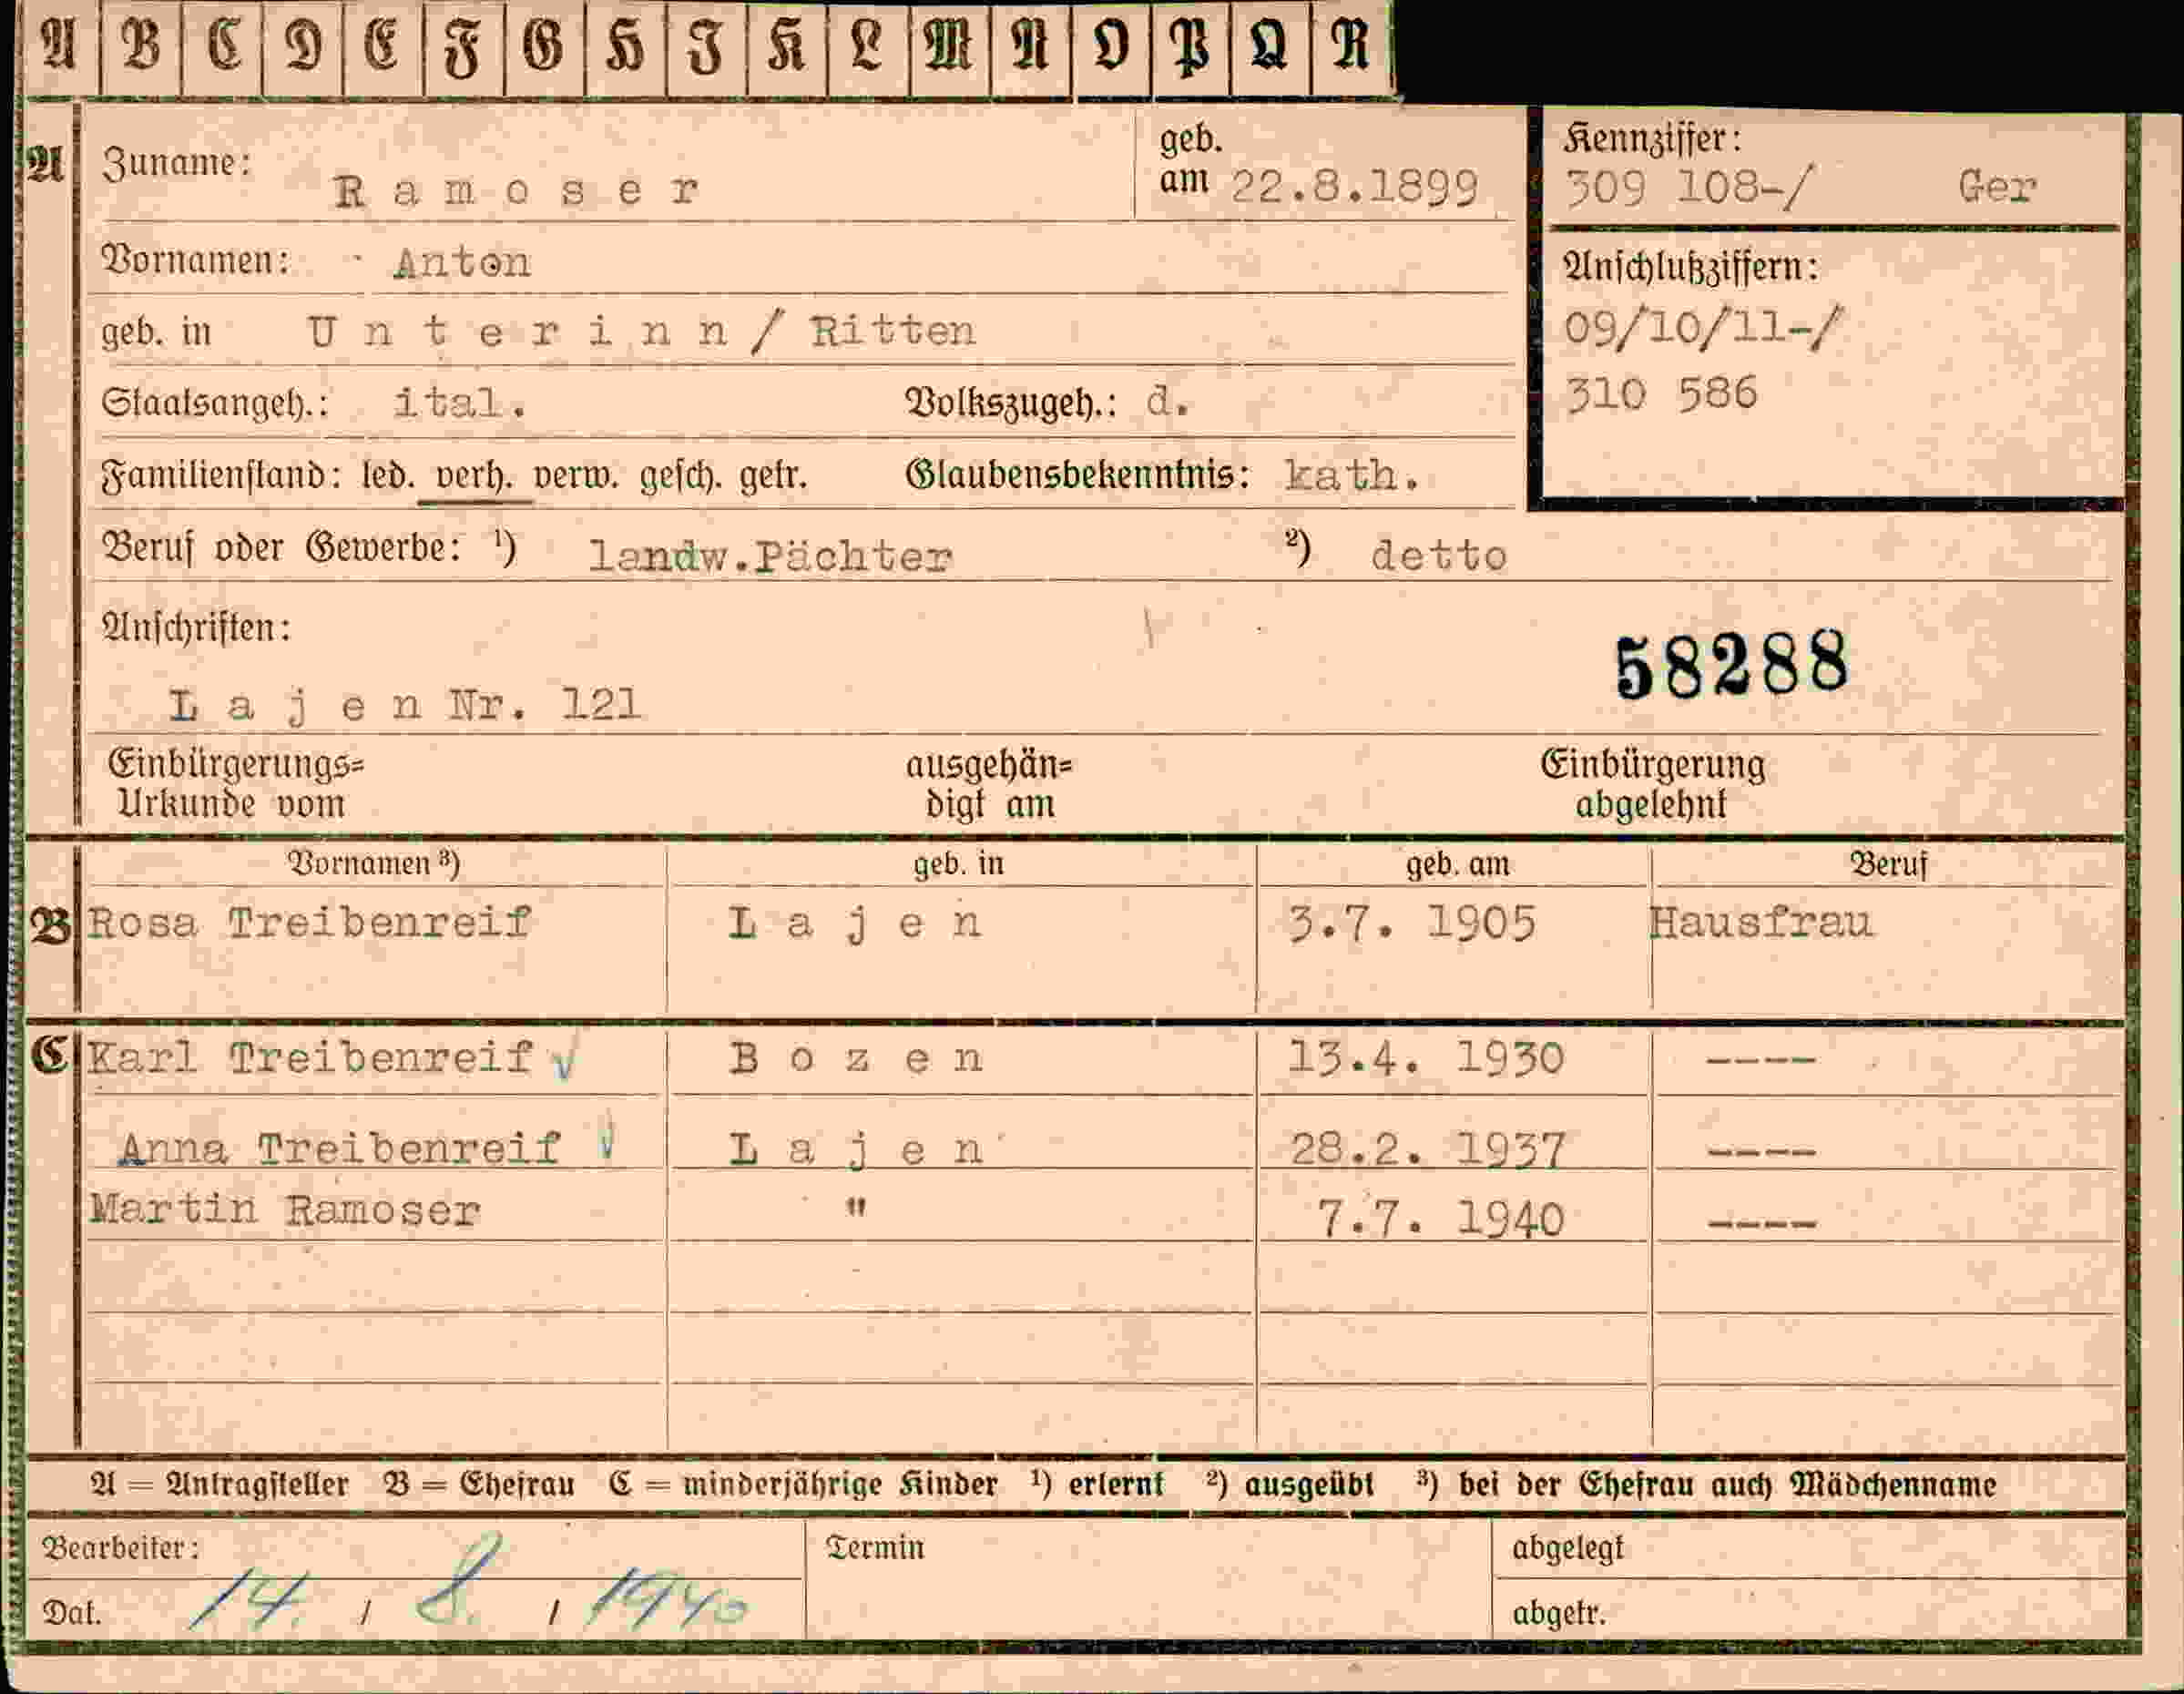 A B C D E F G H J K L M N O P Q R
A Zuname: R a m o s e r geb. am 22.8.1899 Kennziffer: 309 108-/ Ger
Vornamen: Anton Anschlußziffern:
geb. in U n t e r i n n / Ritten 09/10/11-/
Staatsangeh.: ital. Volkszugeh.: d. 310 586
Familienstand: led. verh. verw. gesch. getr. Glaubensbekenntnis: kath.
Beruf oder Gewerbe: ¹) landw.Pächter ²) detto
Anschriften:
58288
L a j e n Nr. 121
Einbürgerungs= ausgehän= Einbürgerung
Urkunde vom digt am abgelehnt
Vornamen ³) geb. in geb. am Beruf
B Rosa Treibenreif L a j e n 3.7. 1905 Hausfrau
C Karl Treibenreif √ B o z e n 13.4. 1930 ----
Anna Treibenreif √ L a j e n 28.2. 1937 ----
Martin Ramoser " 7.7. 1940 ----
A = Antragsteller B = Ehefrau C = minderjährige Kinder ¹) erlernt ²) ausgeübt ³) bei der Ehefrau auch Mädchenname
Bearbeiter: Termin abgelegt
Dat. 14. / 8. / 1940 abgetr.